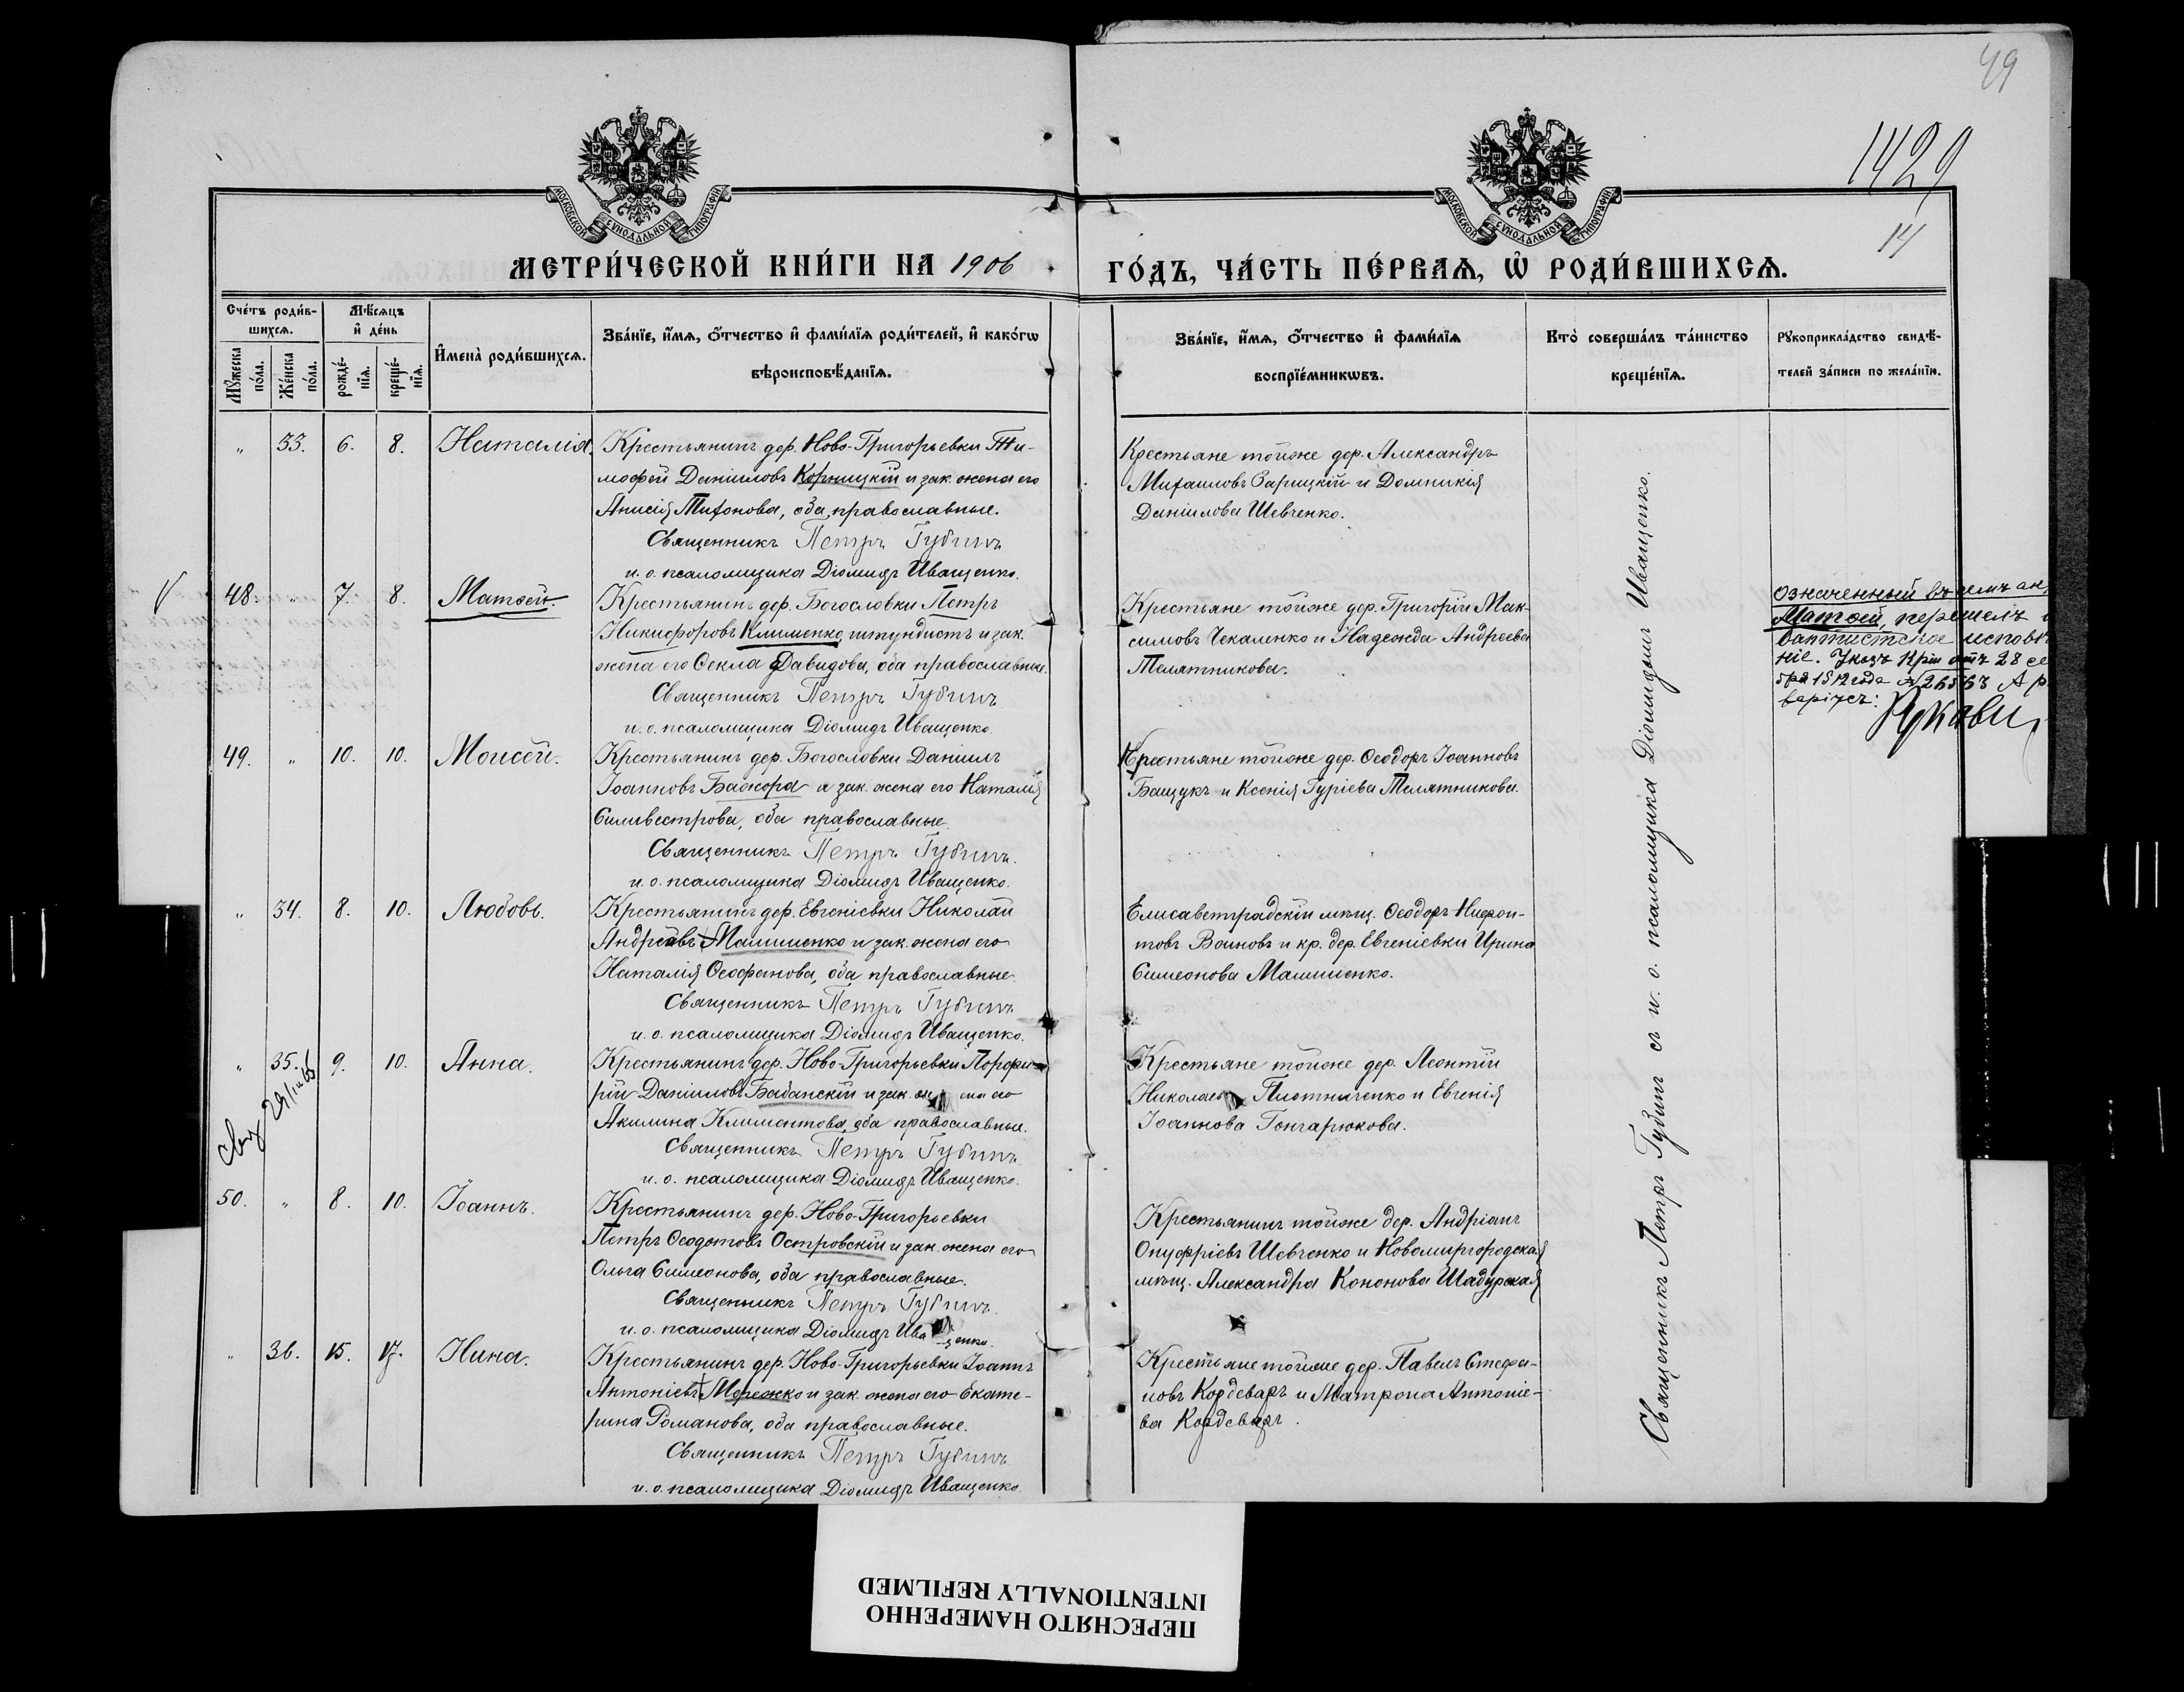 49
1429
14
МОСКОВСКОЙ СѴНОДАЛЬНОЙ ТИПОГРАФІИ
МОСКОВСКОЙ СѴНОДАЛЬНОЙ ТИПОГРАФІИ
МЕТРИ́ЧЕСКОЙ КНИ́ГИ НА 1906
ГО́ДЪ, ЧА́СТЬ ПЕ́РВАѦ, Ѡ҆ РОДИ́ВШИХСѦ.
Сче́тъ роди́в-
шихсѧ.
Мѣ́сѧцъ
и҆ де́нь
Мꙋ́жеска
по́ла.
Же́нска
по́ла.
рожде́-
нїѧ.
креще́-
нїѧ.
И҆мена̀ роди́вшихсѧ.
Зва́нїе, и҆́мѧ, ѻ҆́тчество и҆ фами́лїѧ роди́телей, и҆ како́гѡ
вѣроисповѣ́данїѧ.
Зва́нїе, и҆́мѧ, ѻ҆́тчество и҆ фами́лїѧ
воспрїе́мникѡвъ.
Кто̀ соверша́лъ та́инство
креще́нїѧ.
Рꙋкоприкла́дство свидѣ́-
телей за́писи по жела́нїю.
" 33. 6. 8. Наталія. Крестьянинъ дер. Ново-Григорьевки Ти-
мофей Даніиловъ Корницкій и зак. жена его
Анисія Тихонова, оба православные.
Священникъ Петръ Губинъ
и. о. псаломщика Діомидъ Иващенко.
Крестьяне тойже дер. Александръ
Михаиловъ Зарицкій и Домникія
Даніилова Шевченко.
V 48. " 7. 8. Матѳей. Крестьянинъ дер. Богословки Петръ
Никифоровъ Клименко штундистъ и зак.
жена его Ѳекла Давидова, оба православные.
Священникъ Петръ Губинъ
и. о. псаломщика Діомидъ Иващенко.
Крестьяне тойже дер. Григорій Мак-
симовъ Чекаленко и Надежда Андреева
Телятникова.
означенный въ семъ ак
Матѳей, перешелъ
баптистское исповѣ
ніе. Указъ отъ 28 се
бря 1912 года №
49. " 10. 10. Моисей. Крестьянинъ дер. Богословки Даніилъ
Іоанновъ Бажора и зак. жена его Наталія
Сильвестрова, оба православные.
Священникъ Петръ Губинъ.
и. о. псаломщика Діомидъ Иващенко.
Крестьяне тойже дер. Ѳеодоръ Іоанновъ
Бащукъ и Ксенія Гуріева Телятникова.
" 34. 8. 10. Любовь. Крестьянинъ дер. Евгеніевки Николай
Андреевъ Малишенко и зак. жена его
Наталія Ѳеофанова, оба православные.
Священникъ Петръ Губинъ
и. о. псаломщика Діомидъ Иващенко.
Елисаветградскій мѣщ. Ѳеодоръ Нифон-
товъ Воиновъ и кр. дер. Евгеніевки Ирина
Симеонова Малишенко.
" 35. 9. 10. Анна. Крестьянинъ дер. Ново-Григорьевки Порфи-
рій Даніиловъ Бабанскій и зак. жена его
Акилина Климентова, оба православные.
Священникъ Петръ Губинъ
и. о. псаломщика Діомидъ Иващенко.
Крестьяне тойже дер. Леонтій
Плотниченко и Евгенія
Іоаннова Гончарюкова.
50. " 8. 10. Іоаннъ. Крестьянинъ дер. Ново-Григорьевки
Петръ Ѳеодотовъ Островскій и зак. жена его
Ольга Симеонова, оба православные.
Священникъ Петръ Губинъ.
и. о. псаломщика Діомидъ Иващенко.
Крестьянинъ тойже дер. Андріанъ
Онуфріевъ Шевченко и Новомиргородская
мѣщ. Александра Кононова Шадурская
" 36. 15. 17. Нина. Крестьянинъ дер. Ново-Григорьевки Іоаннъ
Антоніевъ Мережко и зак. жена его Екате-
рина Романова, оба православные.
Священникъ Петръ Губинъ
и. о. псаломщика Діомидъ Иващенко.
Крестьяне тойже дер. Павелъ Стефа-
новъ Кордеваръ и Матрона Антоніе-
ва Кордеваръ.
Священникъ Петръ Губинъ съ и. о. псаломщика Діомидомъ Иващенко.
ПЕРЕСНЯТО НАМЕРЕННО
INTENTIONALLY REFILMED